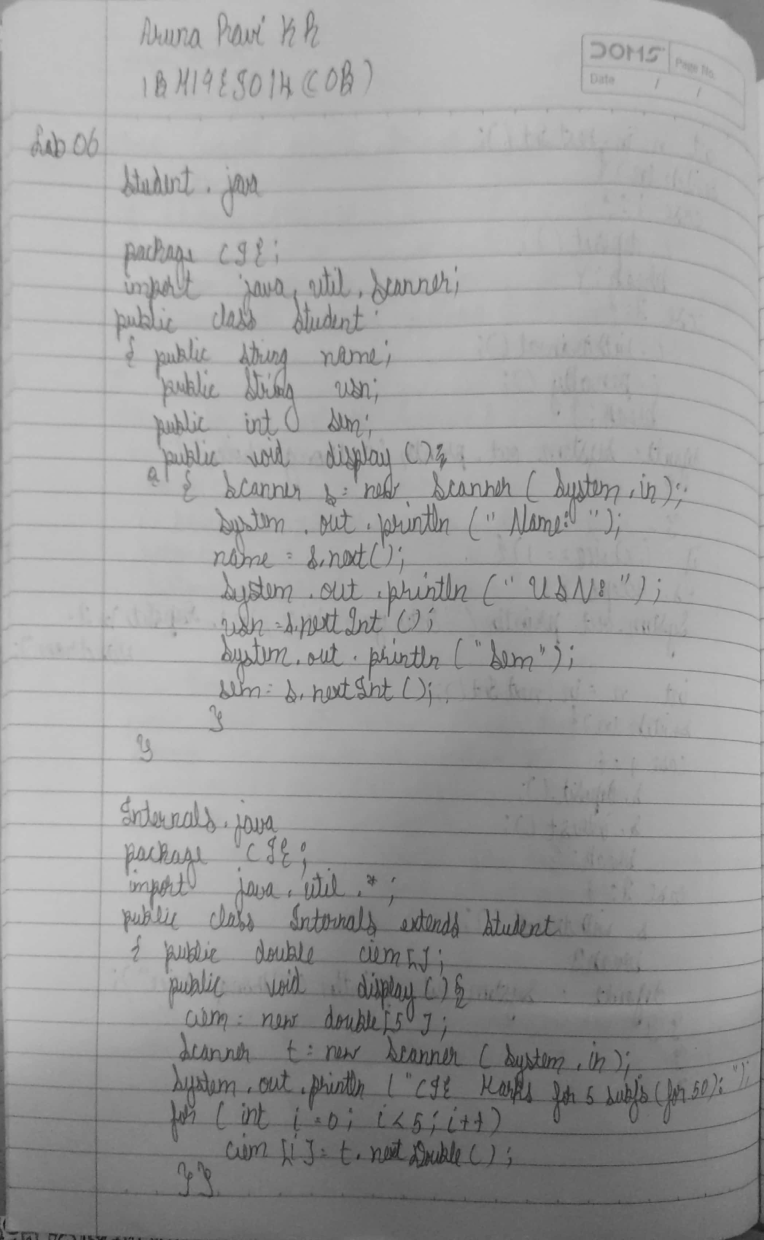 Aruna Ravi K R
DOMS Page No.
Date / /
Lab 06
Student.java
package CIE;
import java.util.Scanner;
public class Student
{ public String name;
public String usn;
public int sem;
public void display()
{ Scanner s = new Scanner(System.in);
System.out.println("Name: ");
name = s.next();
System.out.println("USN: ");
usn = s.nextInt();
System.out.println("Sem");
sem = s.nextInt();
}
}
Internals.java
package CIE;
import java.util.*;
public class Internals extends Student
{ public double ciem[];
public void display(){
ciem = new double[5];
Scanner t = new Scanner(System.in);
System.out.println("CIE Marks for 5 subjs (for 50): ");
for (int i=0; i<5; i++)
ciem[i] = t.nextDouble();
}}